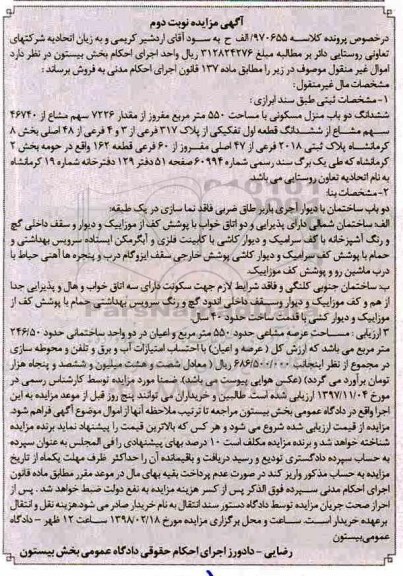 آگهی مزایده نوبت دوم
درخصوص پرونده کلاسه ۹۷۰۶۵۵/الف ح به سود آقای اردشیر کریمی و به زیان اتحادیه شرکتهای
تعاونی روستایی دائر بر مطالبه مبلغ ۳۱۲۸۳۴۲۷۶ ریال واحد اجرای احکام بخش بیستون در نظر دارد
اموال غیر منقول موصوف در زیر را مطابق ماده ۱۳۷ قانون اجرای احکام مدنی به فروش برساند :
مشخصات مال غیرمنقول:
۱- مشخصات ثبتی طبق سند ابرازی :
ششدانگ دو باب منزل مسکونی با مساحت ۵۵۰ متر مربع مفروز از مقدار ۷۲۲۶ سهم مشاع از ۴۶۷۴۰
سهم مشاع از ششدانگ قطعه اول تفکیکی از پلاک ۳۱۷ فرعی از ۳ و ۴ فرعی از ۴۸ اصلی بخش ۸
کرمانشاه پلاک ثبتی ۲۰۱۸ فرعی از ۴۷ اصلی مفروز از ۶۰ فرعی قطعه ۱۶۲ واقع در حومه بخش ۲
کرمانشاه که طی یک برگ سند رسمی شماره ۶۰۹۹۴ صفحه ۵۱ دفتر ۱۲۹ دفترخانه شماره ۱۹ کرمانشاه
به نام اتحادیه تعاون روستایی می باشد.
۲- مشخصات بنا:
دو باب ساختمان با دیوار آجری باربر طاق ضربی فاقد نما سازی در یک طبقه:
الف: ساختمان شمالی دارای پذیرایی و دو اتاق خواب با پوشش کف از موزاییک و دیوار و سقف داخلی گچ
و رنگ آشپزخانه با کف سرامیک و دیوار کاشی با کابینت فلزی و آبگرمکن ایستاده سرویس بهداشتی و
حمام با پوشش کف سرامیک و دیوار کاشی پوشش خارجی سقف ایزوگام درب و پنجره ها آهنی حیاط با
درب ماشین رو و پوشش کف موزاییک.
ب: ساختمان جنوبی کلنگی و فاقد شرایط لازم جهت سکونت دارای سه اتاق خواب و هال و پذیرایی جدا
از هم و کف موزاییک و دیوار وسقف داخلی اندود گچ و رنگ سرویس بهداشتی حمام با پوشش کف از
موزاییک و دیوار کاشی با قدمت ساخت حدود ۴۰ سال
۳ ارزیابی : مساحت عرصه مشاعی حدود ۵۵۰ متر مربع و اعیان در دو واحد ساختمانی حدود ۲۴۶/۵۰
متر مربع می باشد که ارزش کل ( عرصه و اعیان) با احتساب امتیازات آب و برق و تلفن و محوطه سازی
در مجموع از نظر اینجانب ریال ( معادل شصت و هشت میلیون و ششصد و پنجاه هزار
تومان برآورد می گردد) (عکس هوایی پیوست می باشد). ضمنا مورد مزایده توسط کارشناس رسمی در
مورخ ۱۳۹۷/۱۱/۰۴ ارزیابی شده است طالبین و خریداران می توانند پنج روز قبل از موعد مزایده به این
اجرا واقع در دادگاه عمومی بخش بیستون مراجعه تا ترتیب ملاحظه آنها از اموال موضوع آگهی فراهم شود.
مزایده از قیمت ارزیابی شده شروع می شود و هر کس که بالاترین قیمت را پیشنهاد نماید برنده مزایده
شناخته خواهد شد و برنده مزایده مکلف است ۱۰ درصد بهای پیشنهادی را فی المجلس به عنوان سپرده
به حساب سپرده دادگستری تودیع و رسید دریافت و باقیمانده آن را حداکثر ظرف مهلت یکماه از تاریخ
مزایده به حساب مذکور واریز کند در صورت عدم پرداخت بقیه بهای مال در موعد مقرر مطابق ماده قانون
اجرای احکام مدنی سپرده فوق الذکر پس از کسر هزینه مزایده به نفع دولت ضبط خواهد شد . پس از
احراز صحت جریان مزایده توسط دادگاه دستور سند انتقال به نام خریدار صادر می شود.هزینه نقل و انتقال
برعهده خریدار است. ساعت و محل برگزاری مزایده مورخ ۱۳۹۸/۰۲/۱۸ ساعت ۱۲ ظهر - دادگاه
عمومی‌بیستون
رضایی - دادورز اجرای احکام حقوقی دادگاه عمومی بخش بیستون